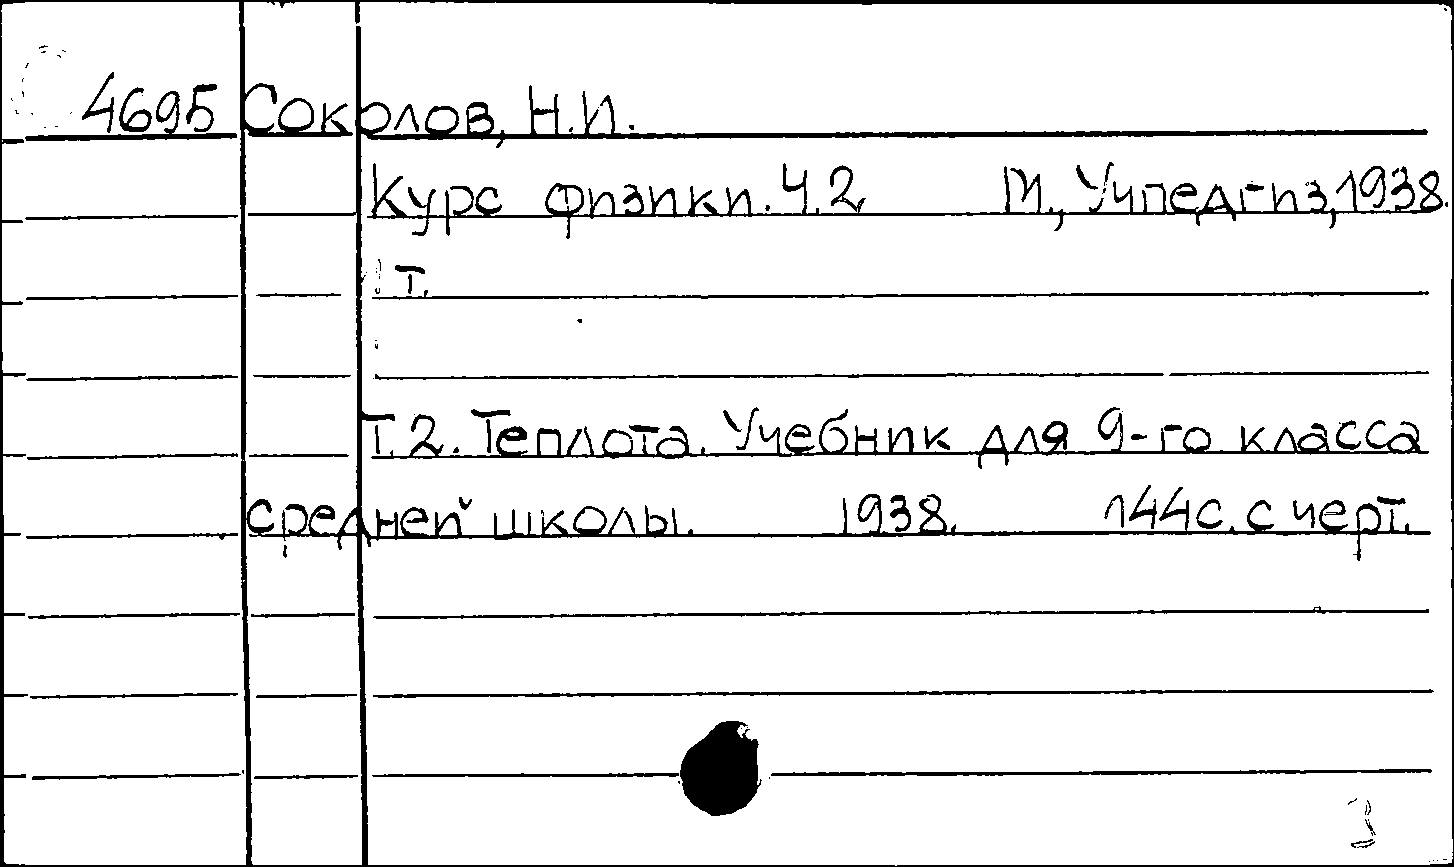 4695 Соколов, Н.И.
Курс физики. Ч.2 М., Учпедгиз, 1938.
т.
Т.2. Теплота. Учебник для 9-го класса
средней школы. 1938. 144с. с черт.
3